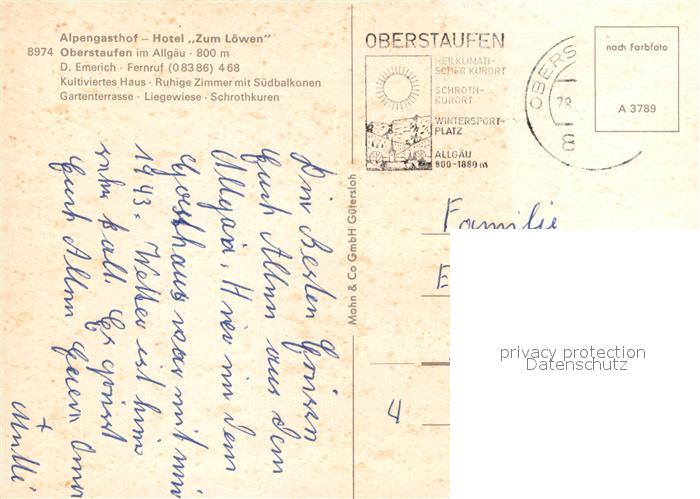 Alpengasthof – Hotel „Zum Löwen"
8974 Oberstaufen im Allgäu · 800 m
D. Emerich · Fernruf (0 83 86) 4 68
Kultiviertes Haus · Ruhige Zimmer mit Südbalkonen
Gartenterrasse · Liegewiese · Schrothkuren
OBERSTAUFEN
HEILKLIMATI-
SCHER KURORT
SCHROTH-
KURORT
WINTERSPORT-
PLATZ
ALLGÄU
800-1880 m
OBERS
28.
8
nach Farbfoto
A 3789
Mohn & Co GmbH Gütersloh
Die besten Grüssen
Euch Allen aus dem
Allgäu. Hier in dem
Gasthaus war mit mir
1943. Wetter ist hier
sehr kalt. Es grüsst
Euch Allen Eure Oma
+
Mutti
Familie
E
4
privacy protection
Datenschutz